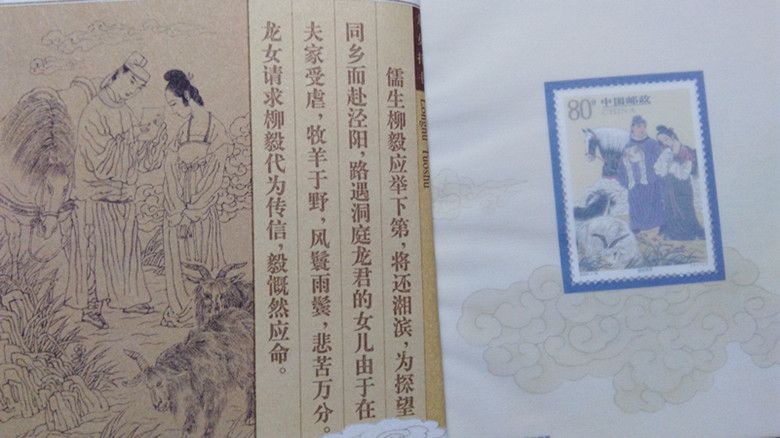 龙女托书
Longnu Tuoshu
儒生柳毅应举下第，将还湘滨，为探望
同乡而赴泾阳，路遇洞庭龙君的女儿由于在
夫家受虐，牧羊于野，风鬟雨鬓，悲苦万分。
龙女请求柳毅代为传信，毅慨然应命。
80分
中国邮政
CHINA